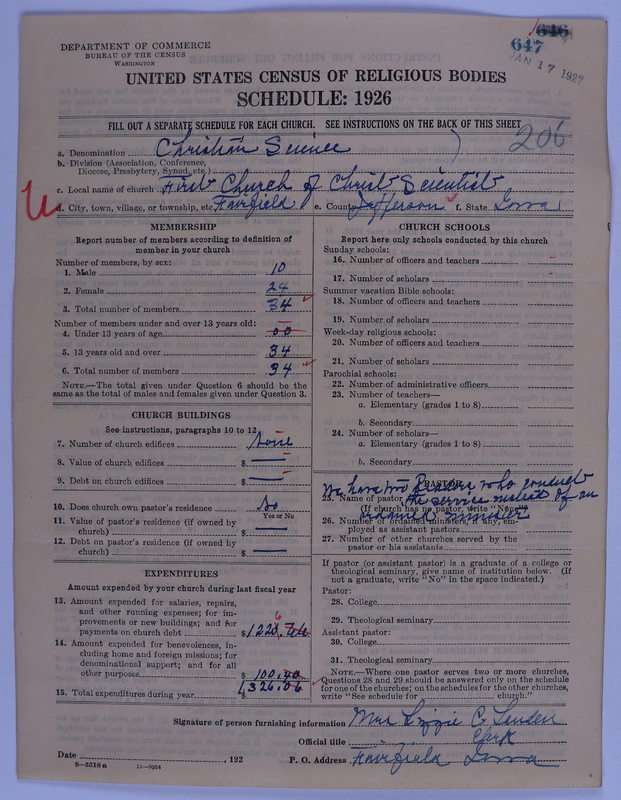 646
647
JAN 17 1927
DEPARTMENT OF COMMERCE
BUREAU OF THE CENSUS
WASHINGTON
UNITED STATES CENSUS OF RELIGIOUS BODIES
SCHEDULE: 1926
FILL OUT A SEPARATE SCHEDULE FOR EACH CHURCH. SEE INSTRUCTIONS ON THE BACK OF THIS SHEET
206
a. Denomination Christian Science
b. Division (Association, Conference, Diocese, Presbytery, Synod, etc.)
c. Local name of church First Church of Christ Scientist
d. City, town, village, or township, etc. Fairfield e. County Jefferson f. State Iowa
MEMBERSHIP
Report number of members according to definition of member in your church
Number of members, by sex:
1. Male 10
2. Female 24
3. Total number of members 34
Number of members under and over 13 years old:
4. Under 13 years of age 00
5. 13 years old and over 34
6. Total number of members 34
NOTE.—The total given under Question 6 should be the same as the total of males and females given under Question 3.
CHURCH BUILDINGS
See instructions, paragraphs 10 to 12
7. Number of church edifices none
8. Value of church edifices $
9. Debt on church edifices $
10. Does church own pastor's residence No
Yes or No
11. Value of pastor's residence (if owned by church) $
12. Debt on pastor's residence (if owned by church) $
EXPENDITURES
Amount expended by your church during last fiscal year
13. Amount expended for salaries, repairs, and other running expenses; for improvements or new buildings; and for payments on church debt $
14. Amount expended for benevolences, including home and foreign missions; for denominational support; and for all other purposes $ 100.40
15. Total expenditures during year $1,326.06
CHURCH SCHOOLS
Report here only schools conducted by this church
Sunday schools:
16. Number of officers and teachers
17. Number of scholars
Summer vacation Bible schools:
18. Number of officers and teachers
19. Number of scholars
Week-day religious schools:
20. Number of officers and teachers
21. Number of scholars
Parochial schools:
22. Number of administrative officers
23. Number of teachers—
a. Elementary (grades 1 to 8)
b. Secondary
24. Number of scholars—
a. Elementary (grades 1 to 8)
b. Secondary
PASTOR
We have two Readers who conduct
the service instead of an
ordained minister
25. Name of pastor
(If church has no pastor, write "None")
26. Number of ordained ministers, if any, employed as assistant pastors
27. Number of other churches served by the pastor or his assistants
If pastor (or assistant pastor) is a graduate of a college or theological seminary, give name of institution below. (If not a graduate, write "No" in the space indicated.)
Pastor:
28. College
29. Theological seminary
Assistant pastor:
30. College
31. Theological seminary
NOTE.—Where one pastor serves two or more churches, Questions 28 and 29 should be answered only on the schedule for one of the churches; on the schedules for the other churches, write "See schedule for church."
Signature of person furnishing information Mrs Lizzie C.
Official title Clerk
Date , 192 P. O. Address Fairfield Iowa
8—5518 a 11—9554